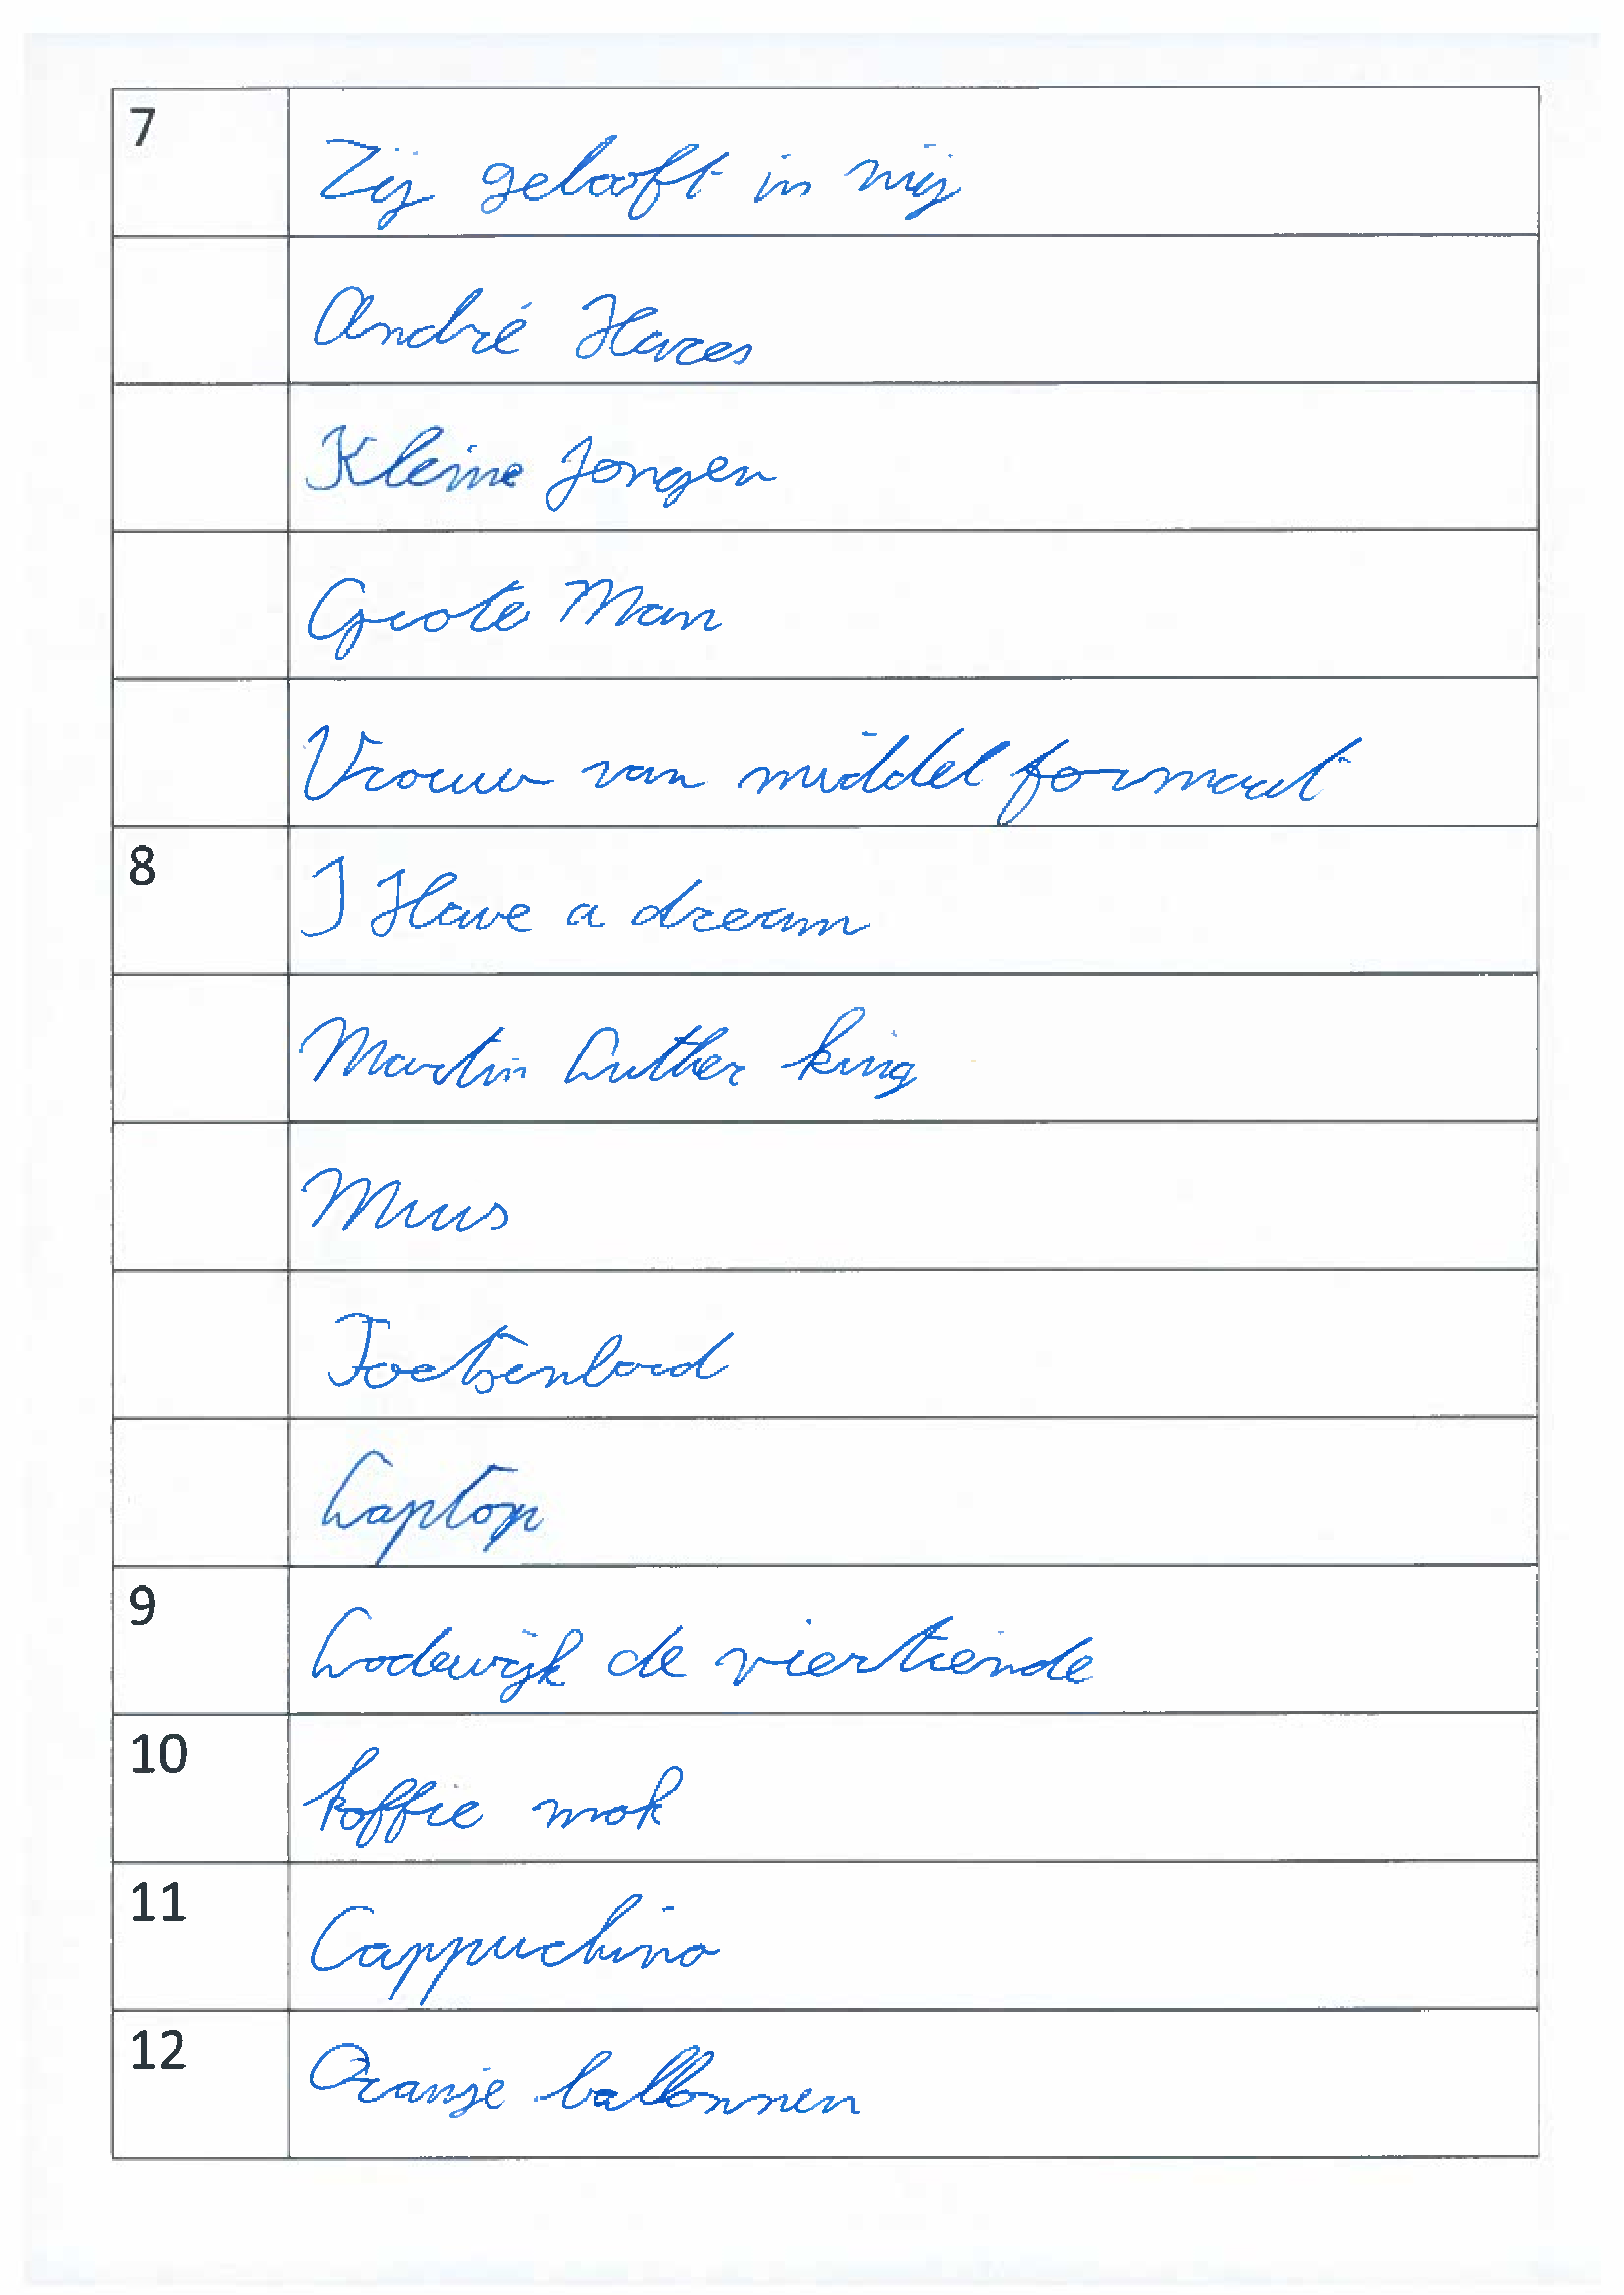 7 Zij gelooft in mij
André Hazes
Kleine Jongen
Grote Man
Vrouw van middel formaat
8 I Have a dream
Martin Luther king
Muus
Toetsenbord
Laptop
9 Lodewijk de viertiende
10 koffie mok
11 Cappuchino
12 Oranje ballonnen